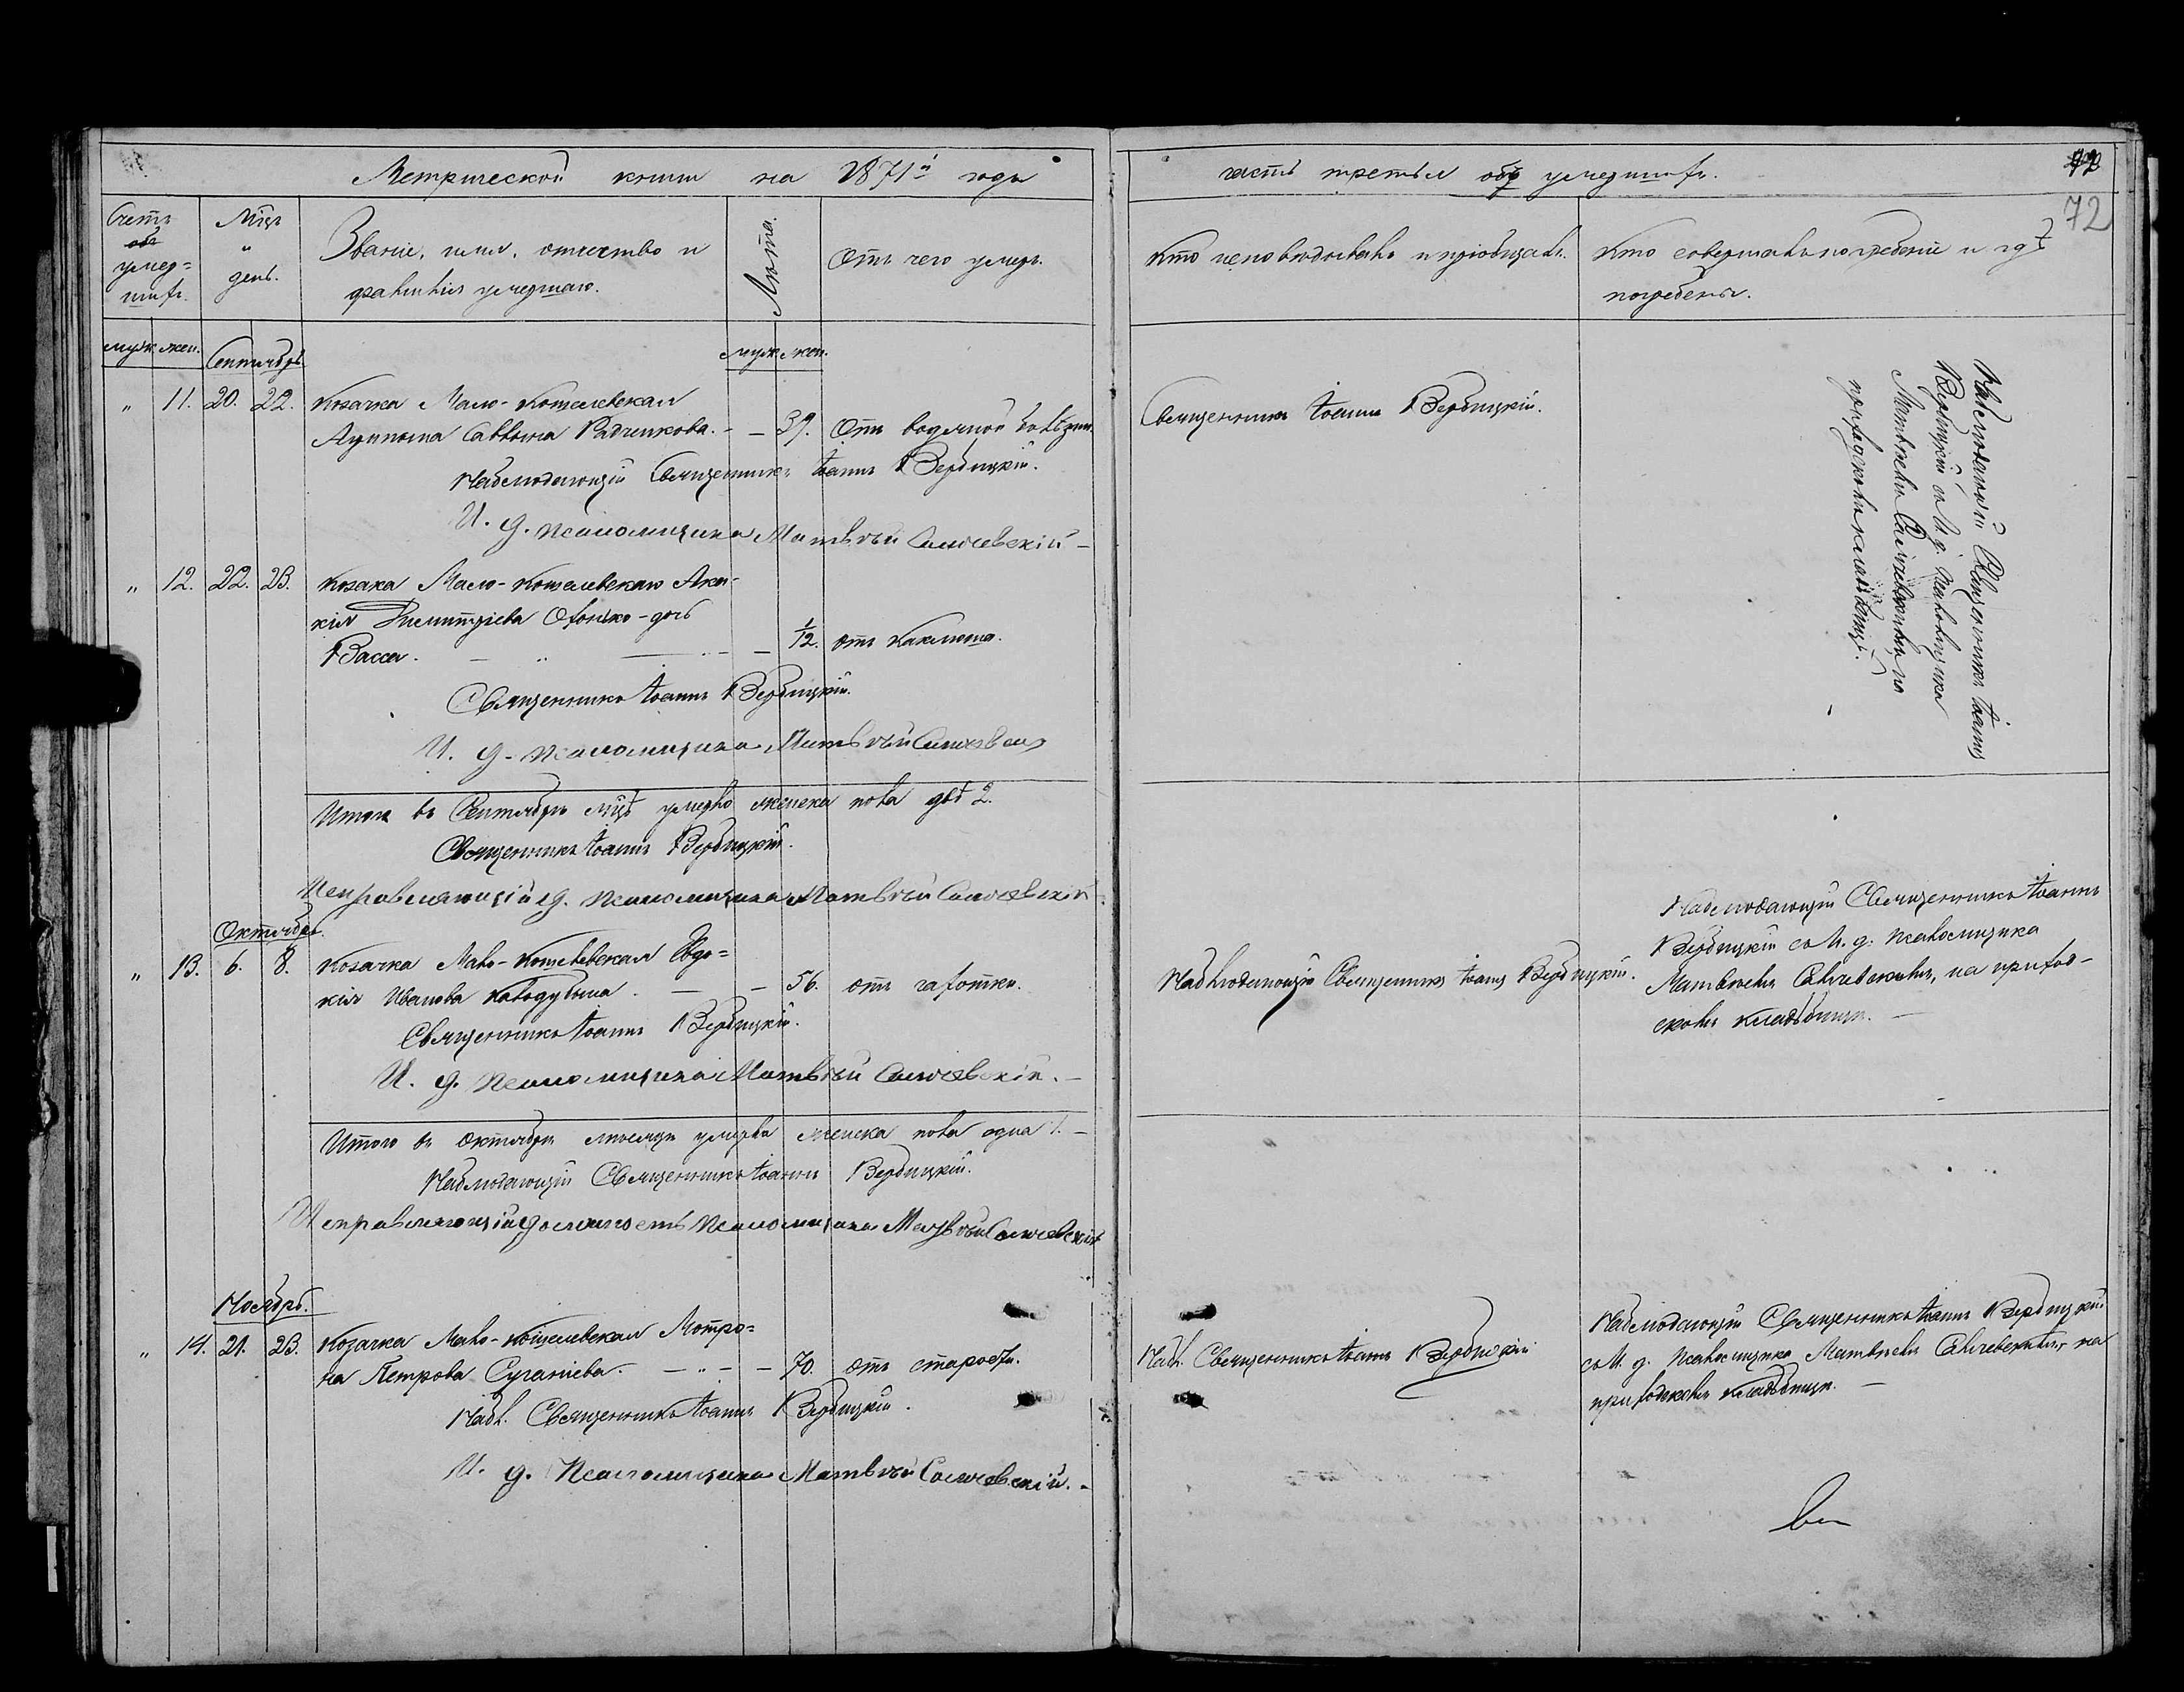 Метрической книги на 1871й годъ
часть третья объ умершихъ.
72
Счетъ умер=
шихъ.
Мцъ
и
день.
Званіе, имя, отчество и
фамилія умершаго.
Лѣта.
Отъ чего умеръ.
Кто исповѣдывалъ и пріобщалъ.
Кто совершалъ погребеніе и гдѣ
погребены.
муж. жен.
Сентябрь
муж. жен.
" 11. 20. 22. Козачка Мало-Кошелевская
Саввова Радченкова. - - 39. Отъ водяной болѣзни.
Наблюдающій Священникъ Іоаннъ Вербицкій.
И. д. псаломщика Матвѣй
Священникъ Іоаннъ Вербицкій.
Наблюдающій Священникъ Іоаннъ
Вербицкій съ И. д. Псаломщика
Матвѣемъ на
приходскомъ кладбищѣ.
" 12. 22. 23. Козака Мало-Кошелевскаго Ака-
кія Димитріева дочь
Васса. - " - - 1/12. отъ Каклюша.
Священникъ Іоаннъ Вербицкій.
И. д. псаломщика Матвѣй
Итого въ Сентябрѣ мцѣ умерло женска пола двѣ 2.
Священникъ Іоаннъ Вербицкій.
Исправляющій д. псаломщика Матвѣй
Октябрь.
" 13. 6. 8. Козачка Мало-Кошелевская Евдо=
кія Иванова - - 56. отъ чахотки.
Священникъ Іоаннъ Вербицкій.
И. д. псаломщика Матвѣй
Наблюдающій Священникъ Іоаннъ Вербицкій.
Наблюдающій Священникъ Іоаннъ
Вербицкій съ И. д. псаломщика
Матвѣемъ на приход-
скомъ кладбищѣ. -
Итого въ Октябрѣ мѣсяцѣ умерла женска пола одна 1. -
Наблюдающій Священникъ Іоаннъ Вербицкій.
Исправляющій должность псаломщика Матвѣй
Ноябрь.
" 14. 21. 23. Козачка Мало-Кошелевская Мотро=
на Петрова - " - - 70. отъ старости.
Набл. Священникъ Іоаннъ Вербицкій.
И. д. Псаломщика Матвѣй
Набл. Священникъ Іоаннъ Вербицкій
Наблюдающій Священникъ Іоаннъ Вербицкій
съ И. д. Псаломщика Матвѣемъ на
приходскомъ кладбищѣ. -